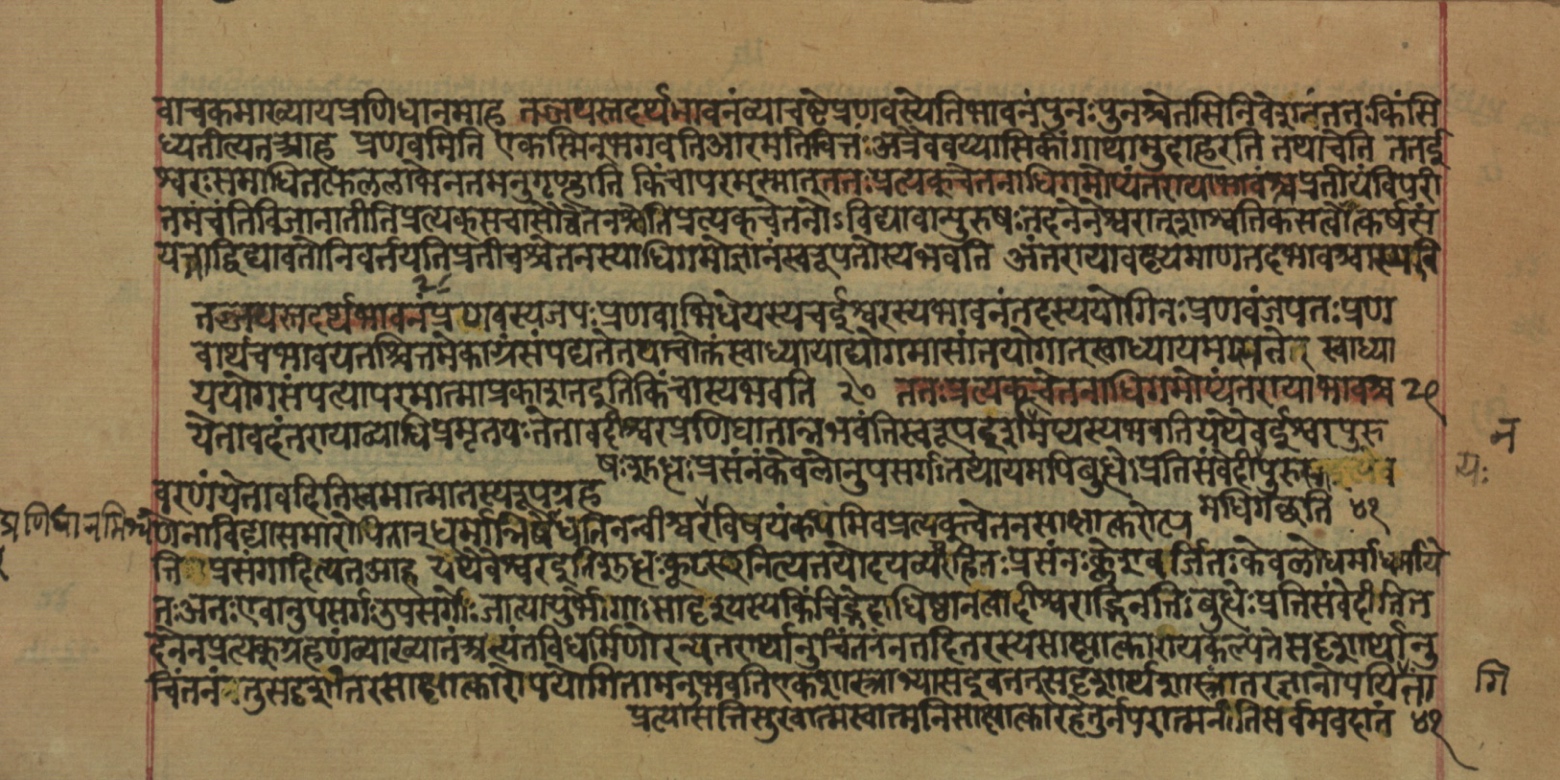 वाचकमाख्यायप्रणिधानमाह तज्जपस्तदर्थभावनंव्याचष्टेप्रणवस्येतिभावनंपुनःपुनश्चेतसिनिवेशनंततःकिंसि
ध्यतीत्यतआह प्रणवमिति एकस्मिन्भगवतिआरमतिचित्तंअत्रैववैय्यासिकींगाथामुदाहरति तथाचेति ततई
श्वरःसमाधितत्फललाभेनतमनुगृण्हाति किंचापरमस्मात्ततःप्रत्यक्चेतनाधिगमोप्यंतरायाभावश्चप्रतीयंविपरी
तमंचंतिविजानातीतिप्रत्यक्सचासौचेतनश्चेतिप्रत्यक्चेतनोऽविद्यावान्पुरुषःतदनेनेश्वरात्शाश्वतिकसत्वोत्कर्षसं
पन्नाद्विद्यावतोनिवर्तयतिप्रतीचश्चेतनस्याधिगमोज्ञानंस्वरूपतोस्यभवति अंतरायावक्ष्यमाणतदभावश्चास्यवि
२८
तज्जपस्तदर्थभावनंप्रणवस्यजपःप्रणवाभिधेयस्यचईश्वरस्यभावनंतदस्ययोगिनःप्रणवंजपतःप्रण
वार्थंचभावयतश्चित्तमेकाग्रंसंपद्यतेतथाचोक्तंस्वाध्यायाद्योगमासीतयोगात्स्वाध्यायमामनेत् स्वाध्या
ययोगसंपत्यापरमात्माप्रकाशतइतिकिंचास्यभवति २० ततःप्रत्यक्चेतनाधिगमोप्यंतरायाभावश्च २९
येतावदंतरायाव्याधिप्रभृतयःतेतावदीश्वरप्रणिधानान्नभवंतिस्वरूपदर्शनमप्यस्यभवतियथैवेईश्वरपुरु
न
षःशुद्धःप्रसंनंकेवलोनुपसर्गःतथायमपिबुद्धेःप्रतिसंवेदीपुरुष
यः
वरणंयेनावदितिस्वमात्मातस्यरूपग्रह
मधिगच्छति ४१
प्रणिधानमिश्र
णेनाविद्यासमारोपितान्धर्मान्निषेधतिनन्वीश्वरविषयंकथमिवप्रत्यक्चेतनसाक्षात्करोत्य
त्तिप्रसंगादित्यतआह यथैवेश्वरइतिशुद्धःकूटस्थनित्यतयोदयव्ययरहितःप्रसंनःक्लेशवर्जितःकेवलोधर्माधर्मापे
तःअतःएवानुपसर्गःउपसर्गाःजात्यायुर्भोगाःसादृश्यस्यकिंचिद्भेदाधिष्ठानत्वादीश्वराद्भिनत्तिःबुद्धेःप्रतिसंवेदीतित
देननप्रत्यक्ग्रहणंव्याख्यानंअत्यंतविधर्मिणोरन्यतरार्थानुचिंतनंनतदितरस्यसाक्षात्कारायकल्पतेसदृशार्थानु
चिंतनंतुसदृशांतरसाक्षात्कारोपयोगितामनुभवतिएकशास्त्राभ्यासइवतत्सदृशार्थशास्त्रांतरज्ञानोपयिता
गि
प्रत्यासत्तिसुखात्मस्वात्मनिसाक्षात्कारहेतुर्नपरात्मनीतिसर्वमवदातं ४१